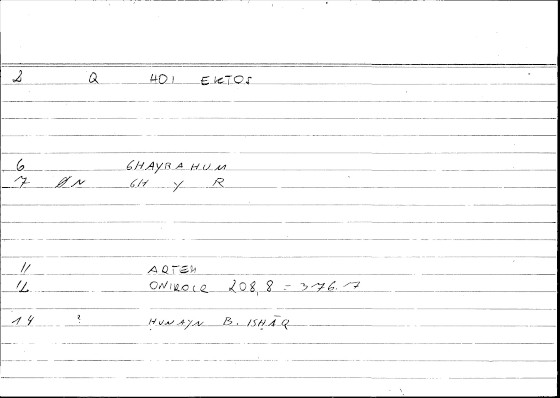 2 Q 401 EKTOS
6 GHAYRAHUM
7 ØN GH Y R
11 ARTEM
12 ONIROCR 208,8 = 376.7
14 ? ḤUNAYN B. ISḤĀQ